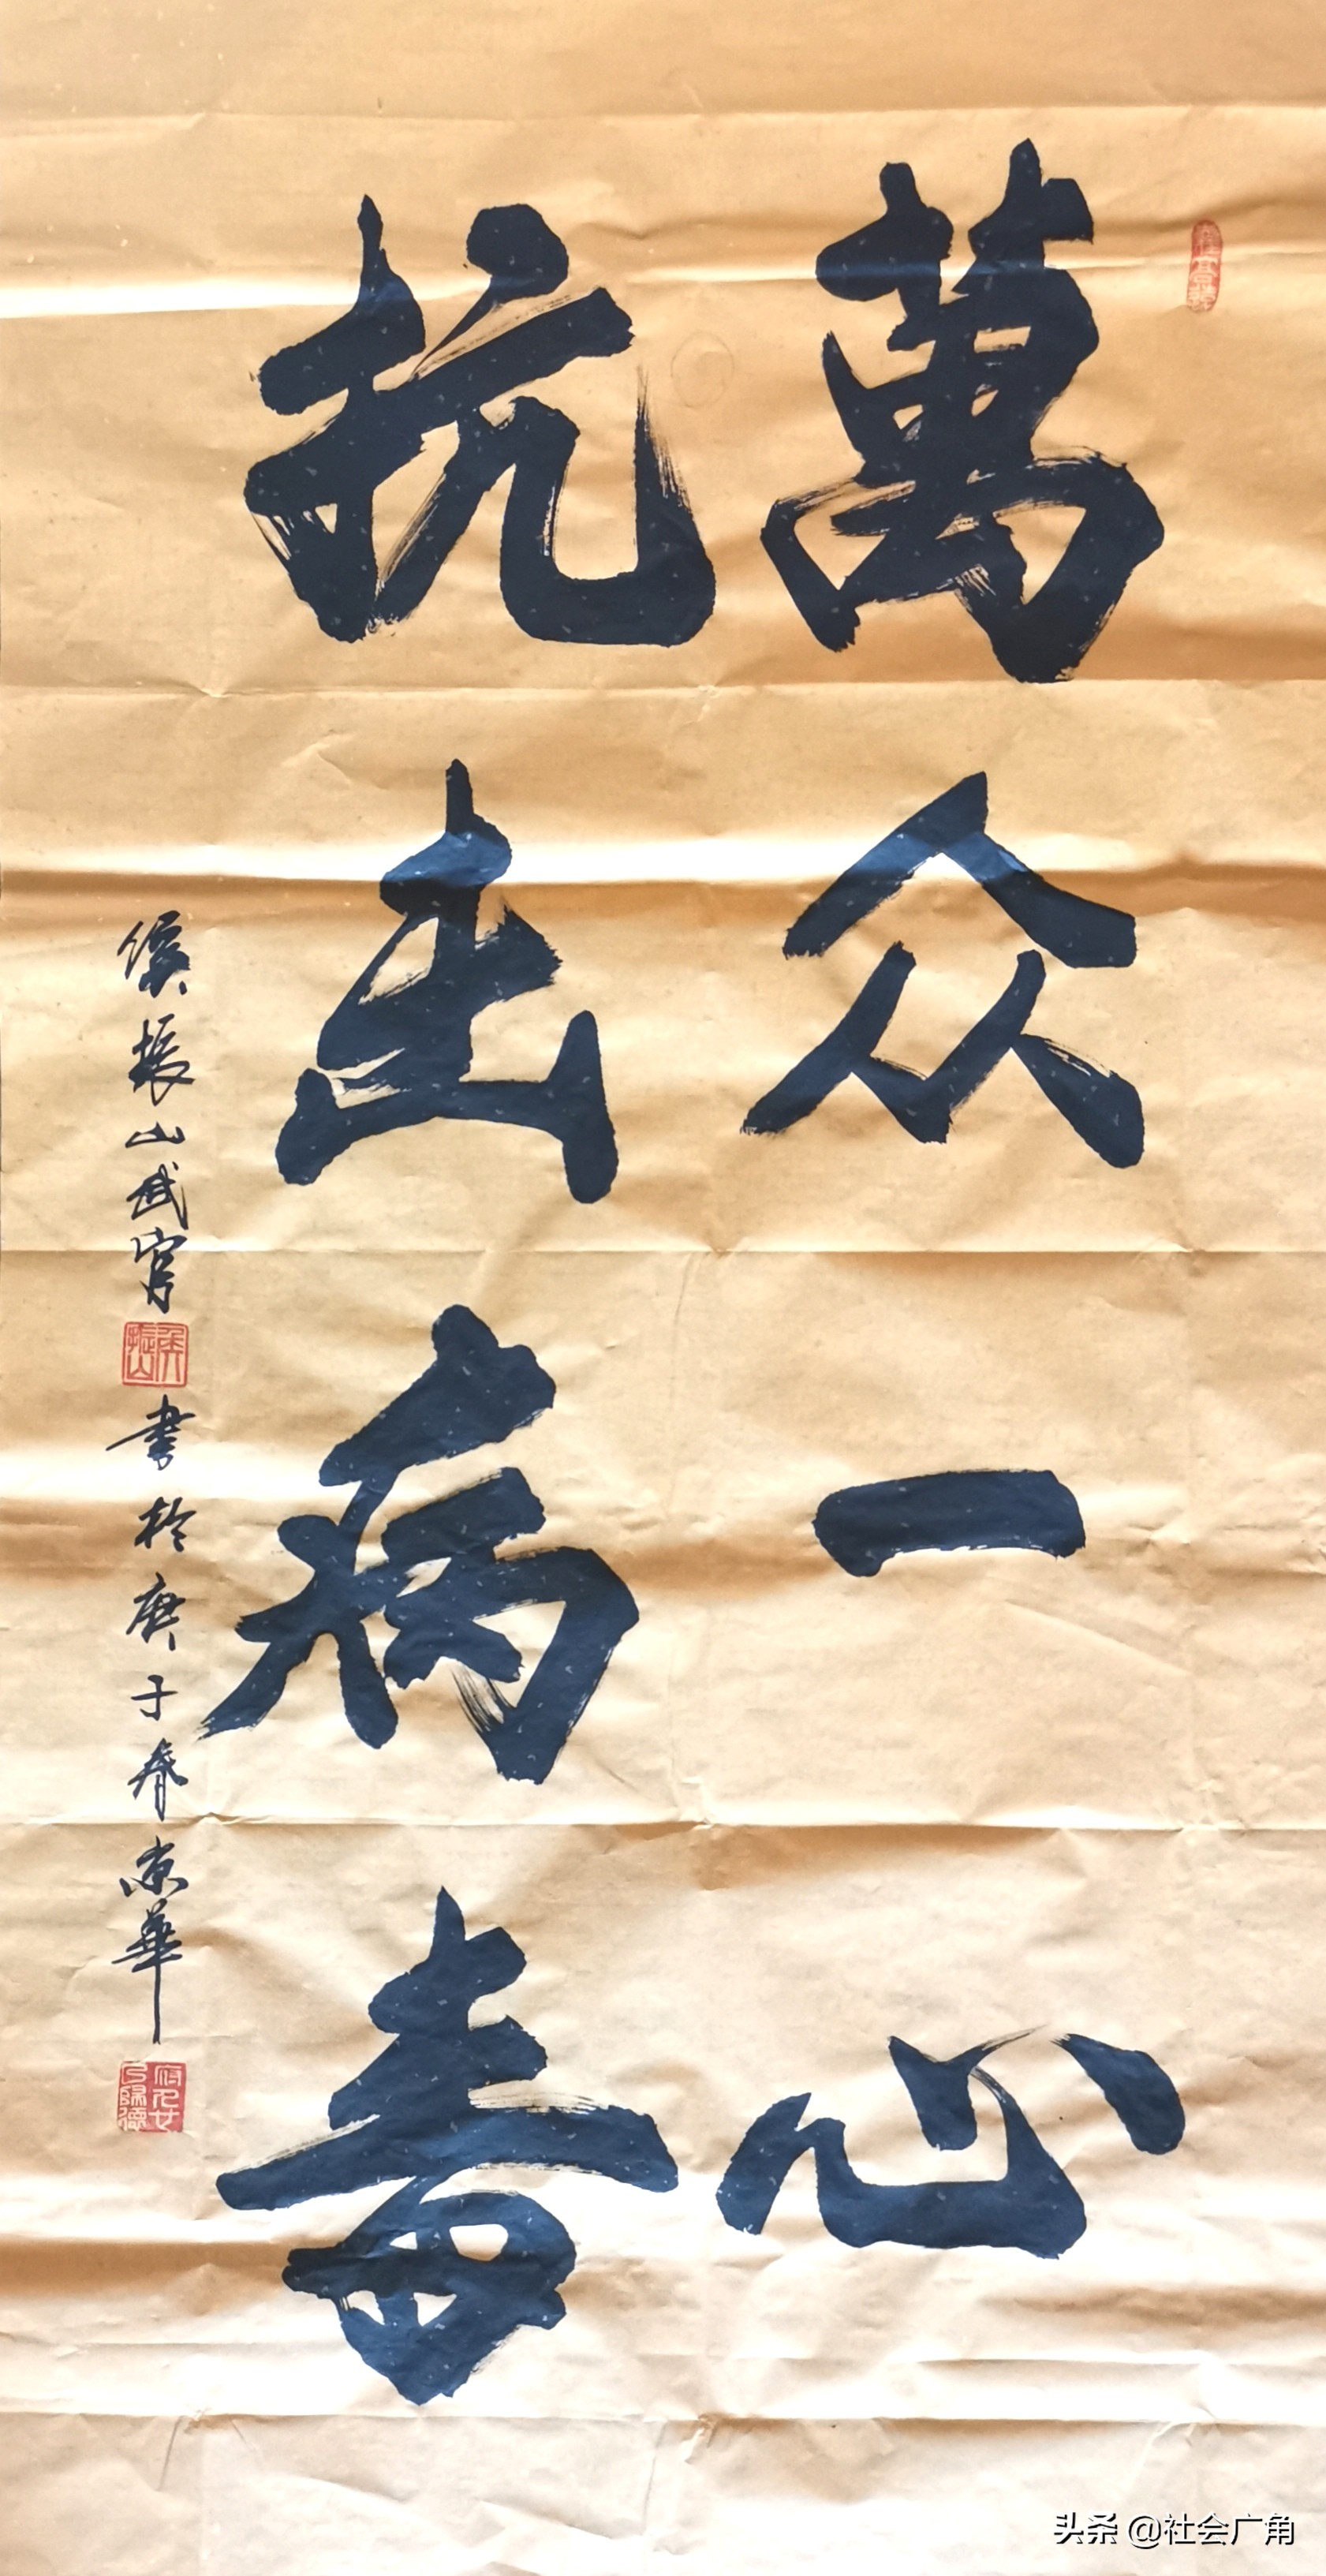 萬众一心
抗击病毒
侯振山武官
书於庚子春京華
头条 @社会广角